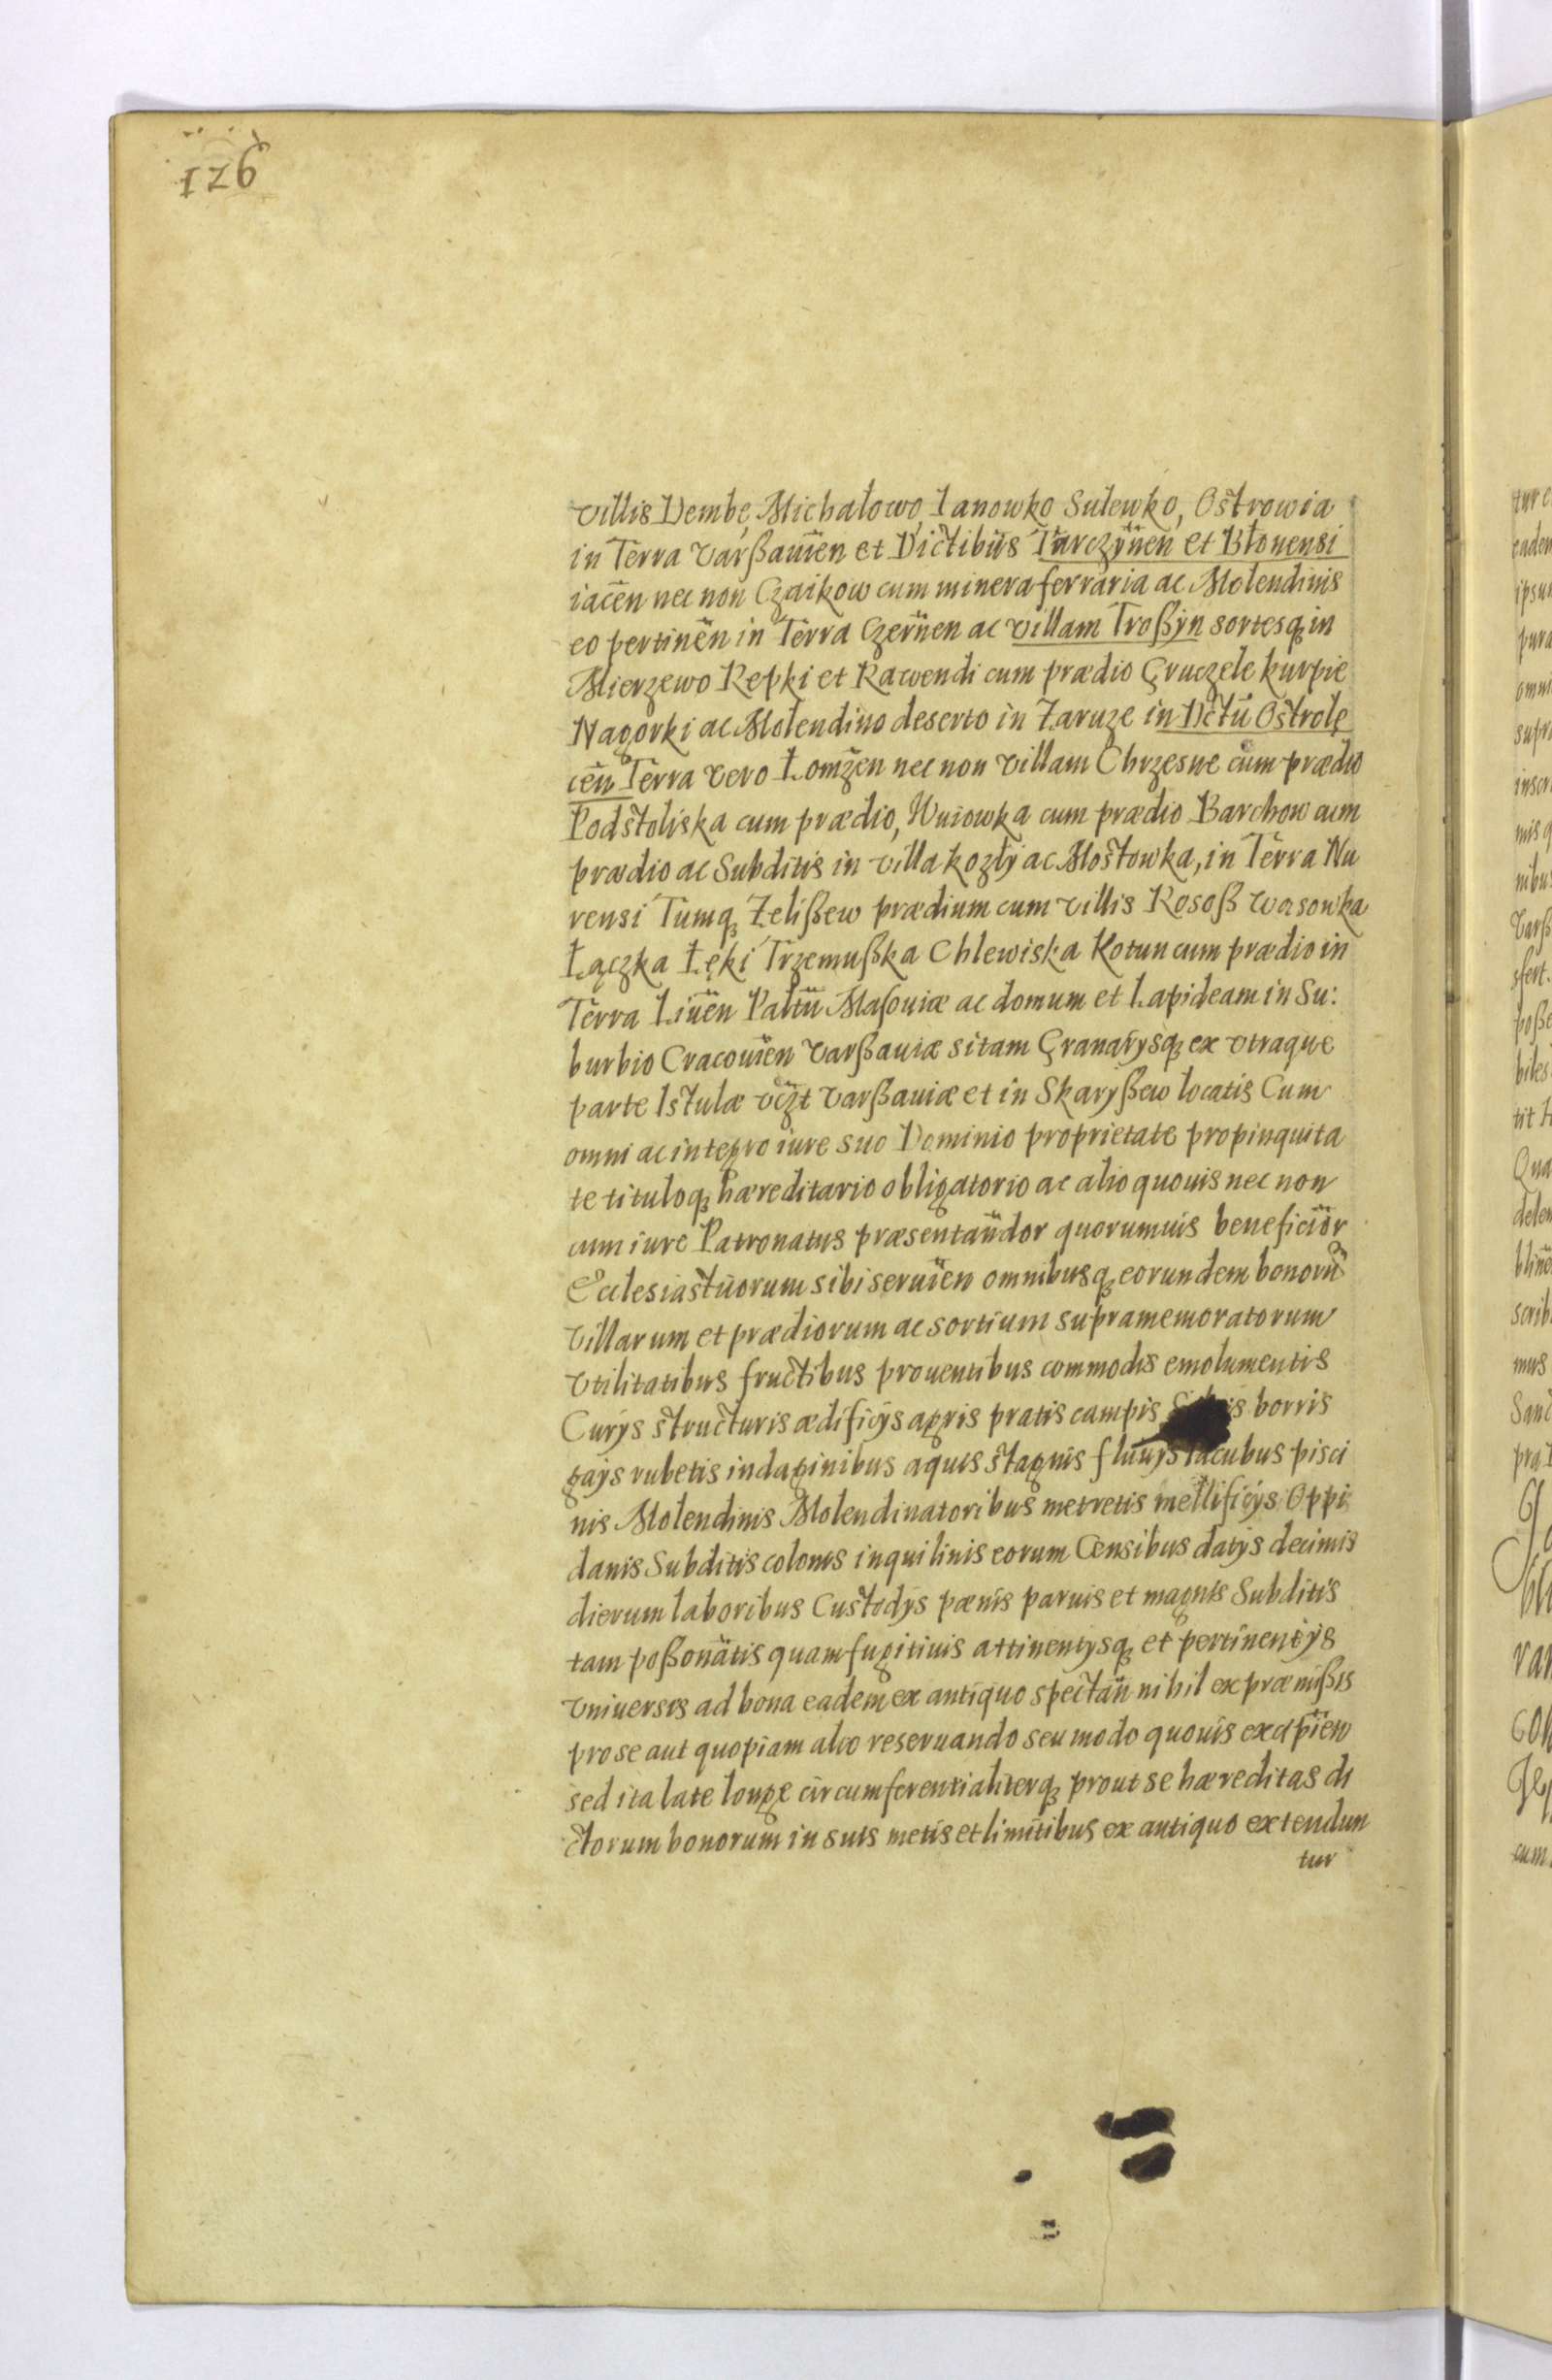 126
villis Dembe, Michałowo, Ianowko Sulewko, Ostrowia
in Terra Varßauien et Dictibus Tarczynen et Błonensi
iacen nec non Czaikow cum minera ferraria ac Molendinis
eo pertinen in Terra Czernen ac villam Troßyn sortesq in
Mierzewo Repki et Rawendi cum prædio Gruczele kurpie
Nagorki ac Molendino deserto in Zaruze in Dctu Ostrołę
cen Terra vero Łomzen nec non villam Chrzesne cum prædio
Podstoliska cum prædio, Wuiowka cum prædio Barchow cum
prædio ac Subditis in villa kozły ac Mostowka, in Terra Nu
rensi Tumq Zelißew prædium cum villis Rososß Wasowka
Łączka Łęki Trzemußka Chlewiska Kotun cum prædio in
Terra Liuen Paltu Masouiæ ac domum et Lapideam in Su:
burbio Cracouien Varßauiæ sitam Granarysq ex vtraque
parte Istulæ vczt Varßauiæ et in Skaryßew locatis Cum
omni ac integro iure suo Dominio proprietate propinquita
te tituloq hæreditario obligatorio ac alio quouis nec non
cum iure Patronatus præsentandor quorumuis beneficior
Ecclesiasticorum sibi seruien omnibusq eorundem bonoru
villarum et prædiorum ac sortium supramemoratorum
vtilitatibus fructibus prouentibus commodis emolumentis
Curys structuris ædificys agris pratis campis borris
gays rubetis indaginibus aquis stagnis fluuys lacubus pisci
nis Molendinis Molendinatoribus metretis mellificys Oppi
danis Subditis colonis inquilinis eorum Censibus datys decimis
dierum laboribus Custodys pænis paruis et magnis Subditis
tam poßonatis quam fugitiuis attinentysq et pertinentys
vniuersis ad bona eadem ex antiquo spectan nihil ex præmißis
pro se aut quopiam alio reseruando seu modo quouis excipien
sed ita late longe circumferentialiterq prout se hæreditas di
ctorum bonorum in suis metis et limitibus ex antiquo extendun
tur